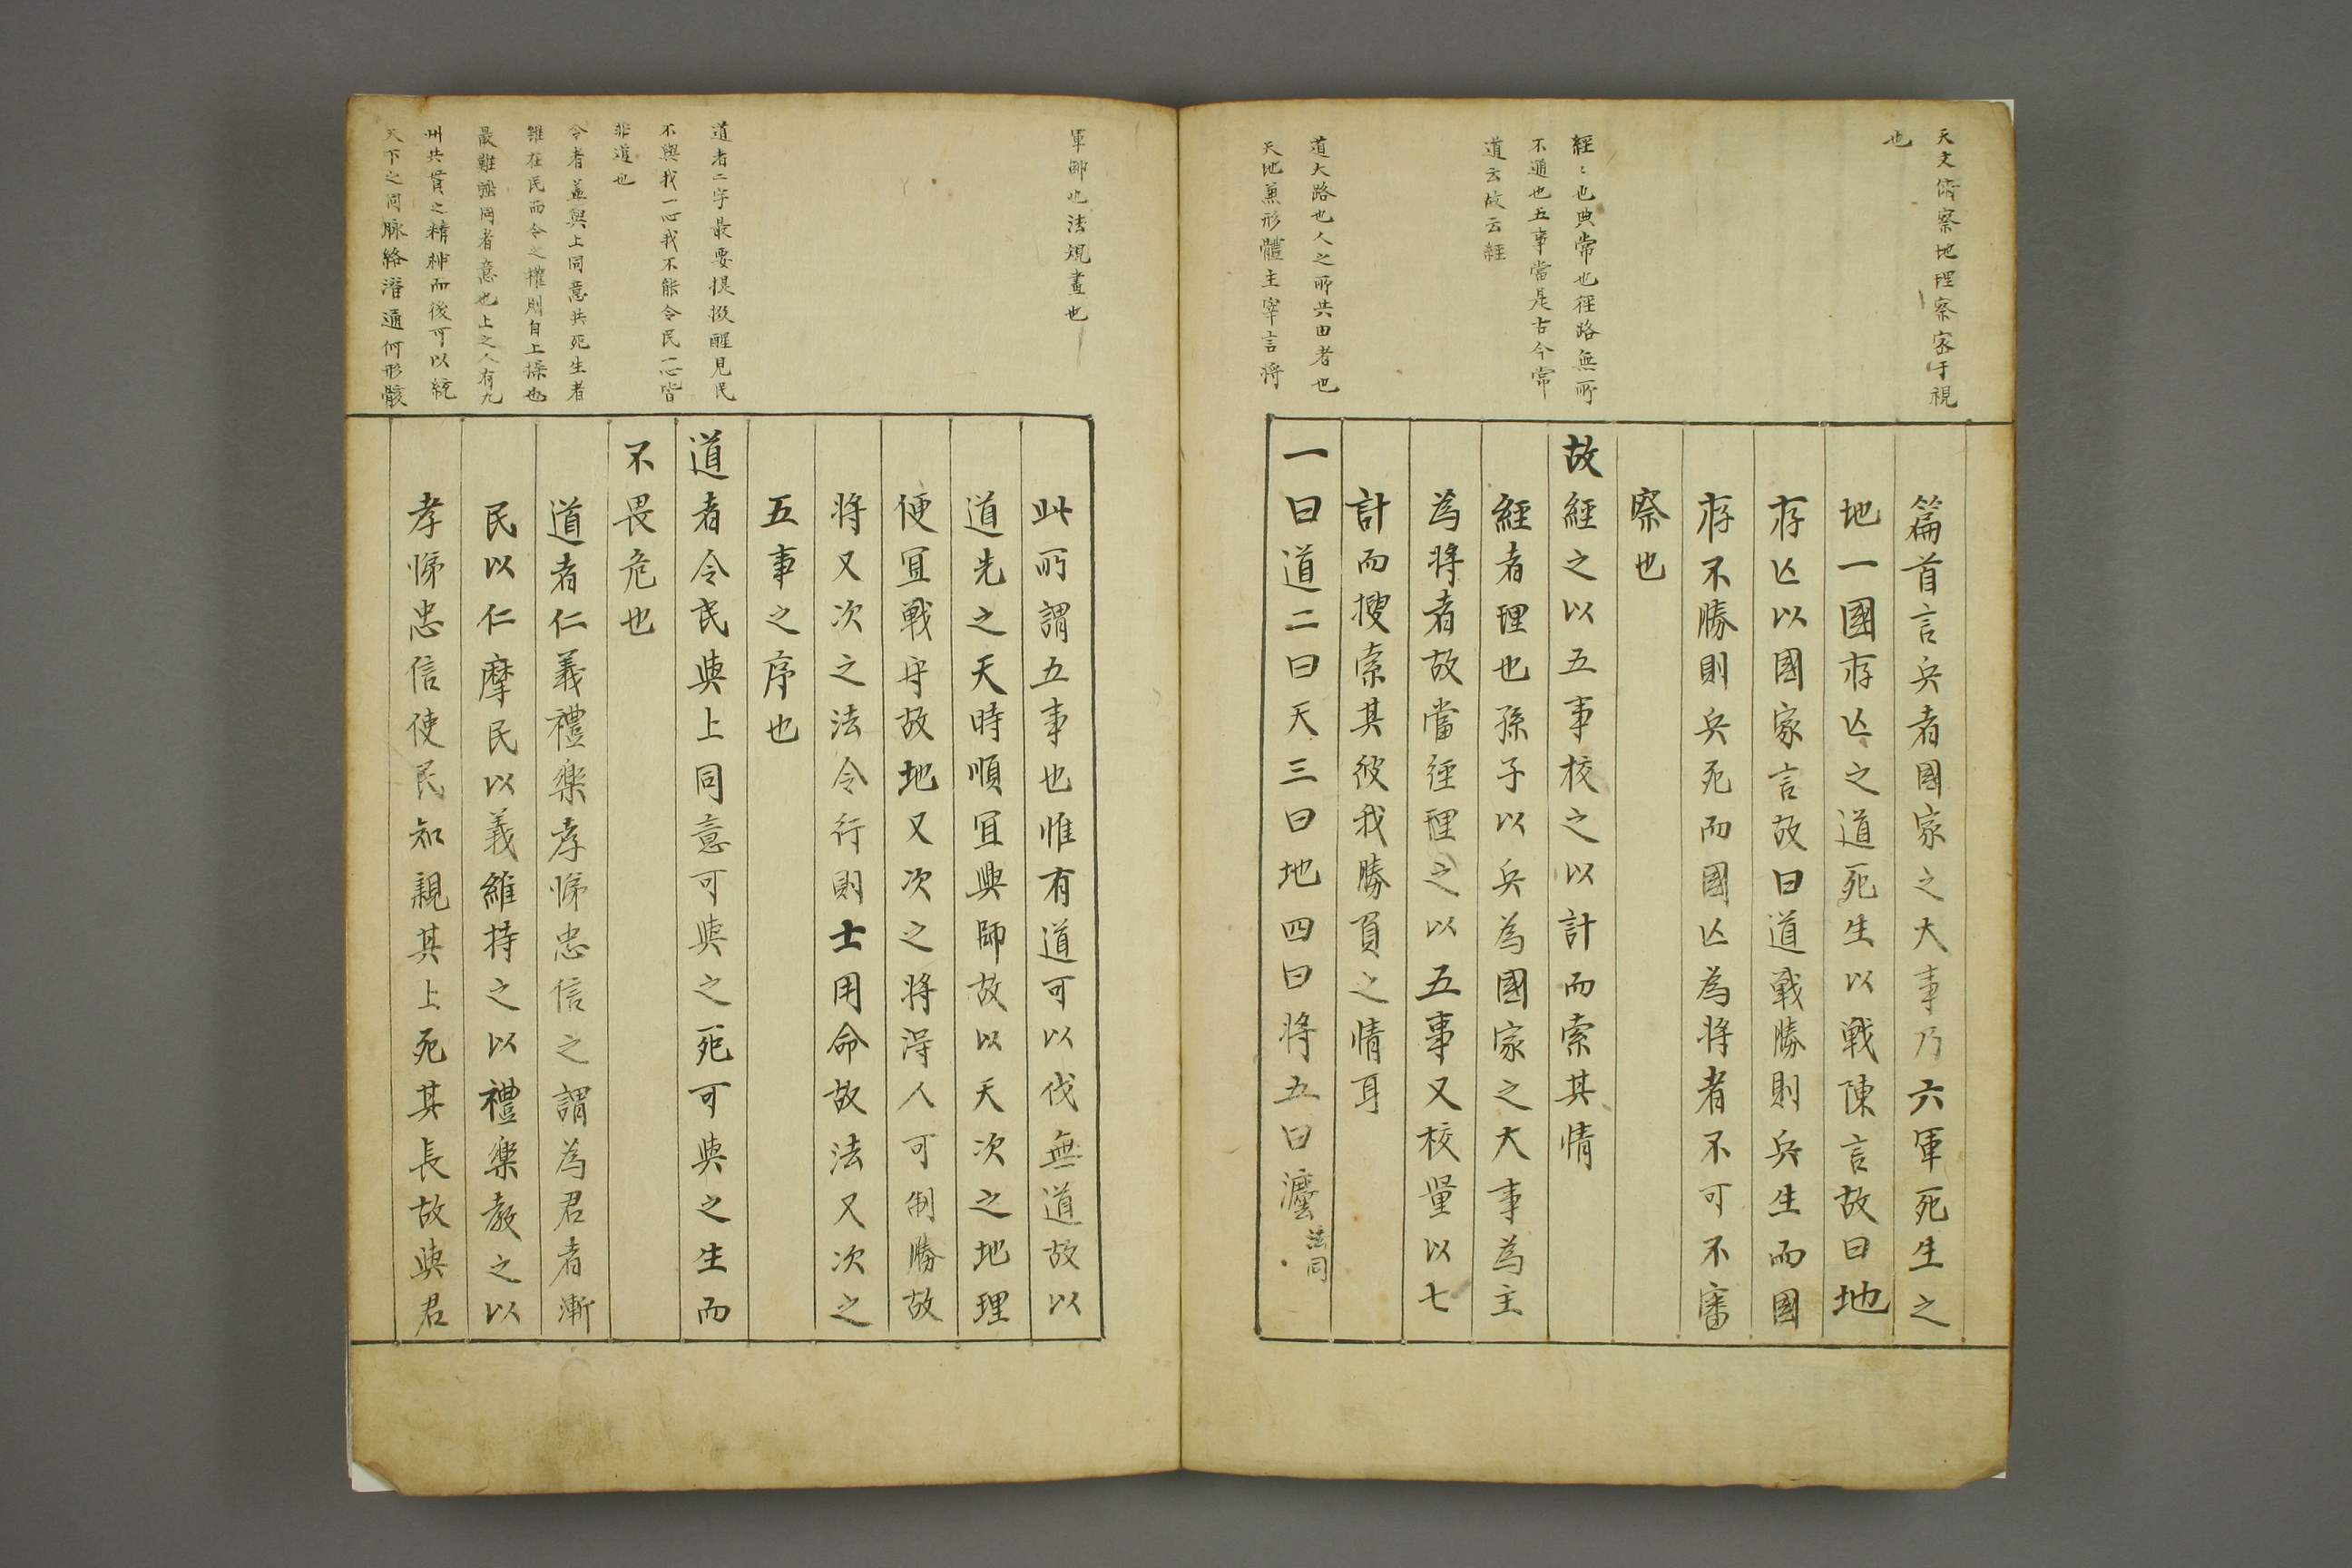 天文俯察地理察家于視
也
經〻也典常也徑路無所
不通也五事當是古今常
道云故云經
道大路也人之所共由者也
天地兼形體主宰言將
篇首言兵者國家之大事乃六軍死生之
地一國存亾之道死生以戦陳言故曰地
存亾以國家言故曰道戦勝則兵生而國
存不勝則兵死而國亾為将者不可不審
察也
故經之以五事校之以計而索其情
經者理也孫子以兵為國家之大事為主
為将者故當經理之以五事又校量以七
計而搜索其彼我勝負之情耳
一曰道二曰天三曰地四曰将五曰灋法同
軍師也法規畫也
道者二字最要提掇醒見民
不與我一心我不能令民一心皆
非道也
令者盖與上同意共死生者
雖在民而令之權則自上操也
最難強同者意也上之人有九
州共貫之精神而後可以統
天下之同脉絡潛通何形骸
此所謂五事也惟有道可以伐無道故以
道先之天時順冝興師故以天次之地理
便冝戦守故地又次之将得人可制勝故
将又次之法令行則士用命故法又次之
五事之序也
道者令民與上同意可與之死可與之生而
不畏危也
道者仁義禮樂孝悌忠信之謂為君者漸
民以仁摩民以義維持之以禮樂教之以
孝悌忠信使民知親其上死其長故與君